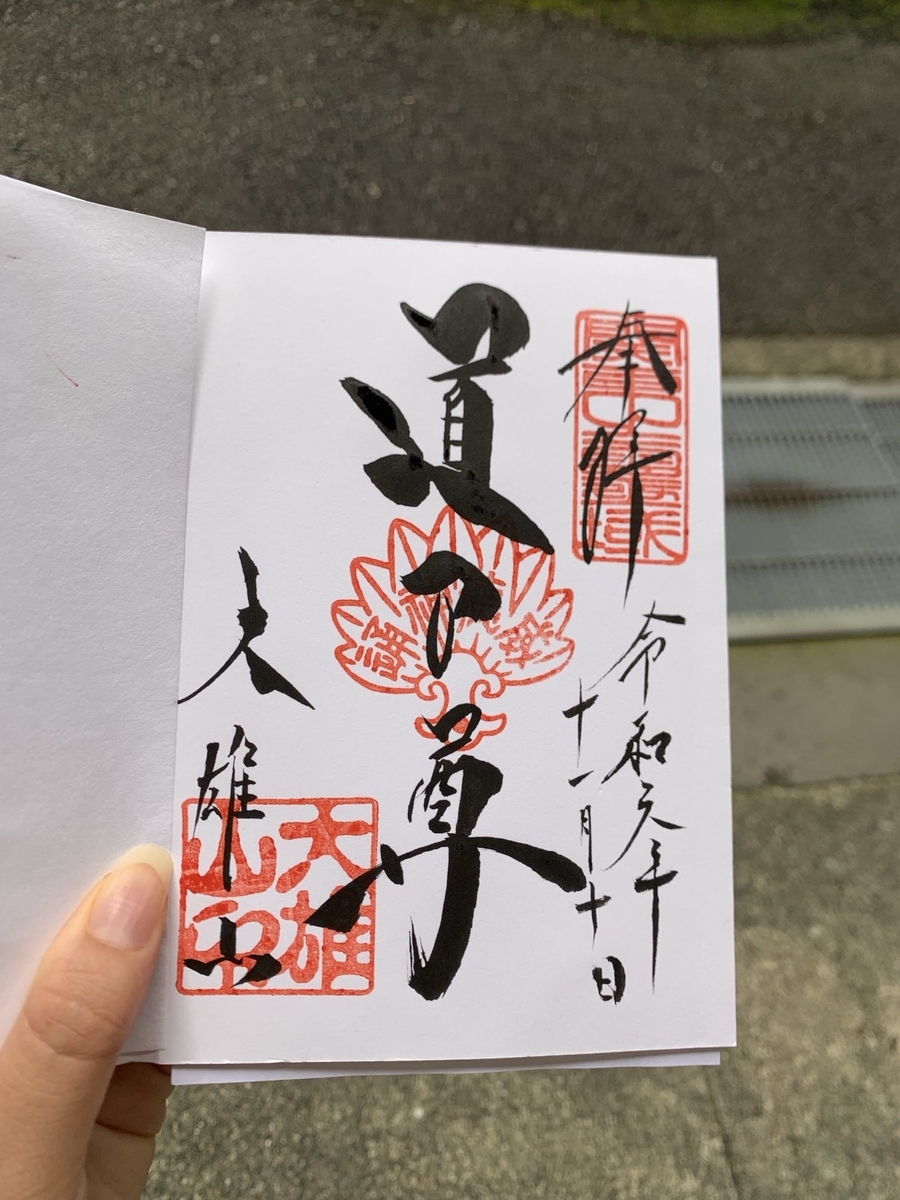 奉拝
令和元年
十一月十日
道了尊
大雄山
大雄
山印